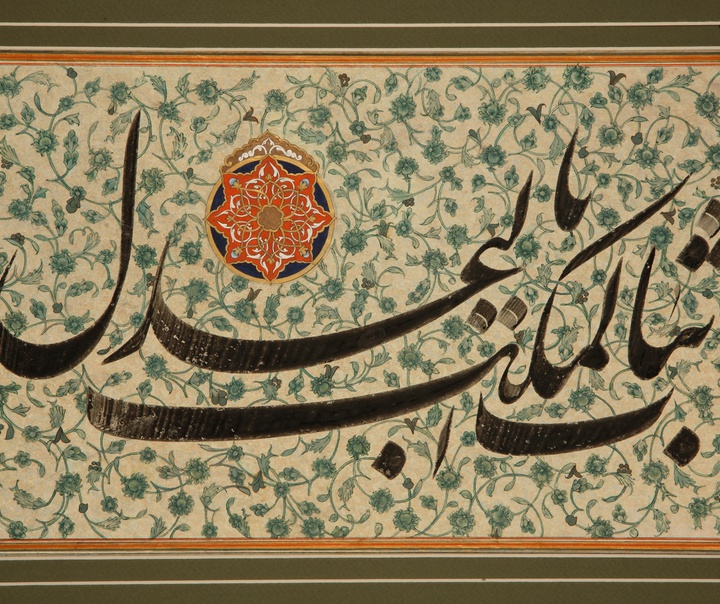 ثبات الملك بالعدل